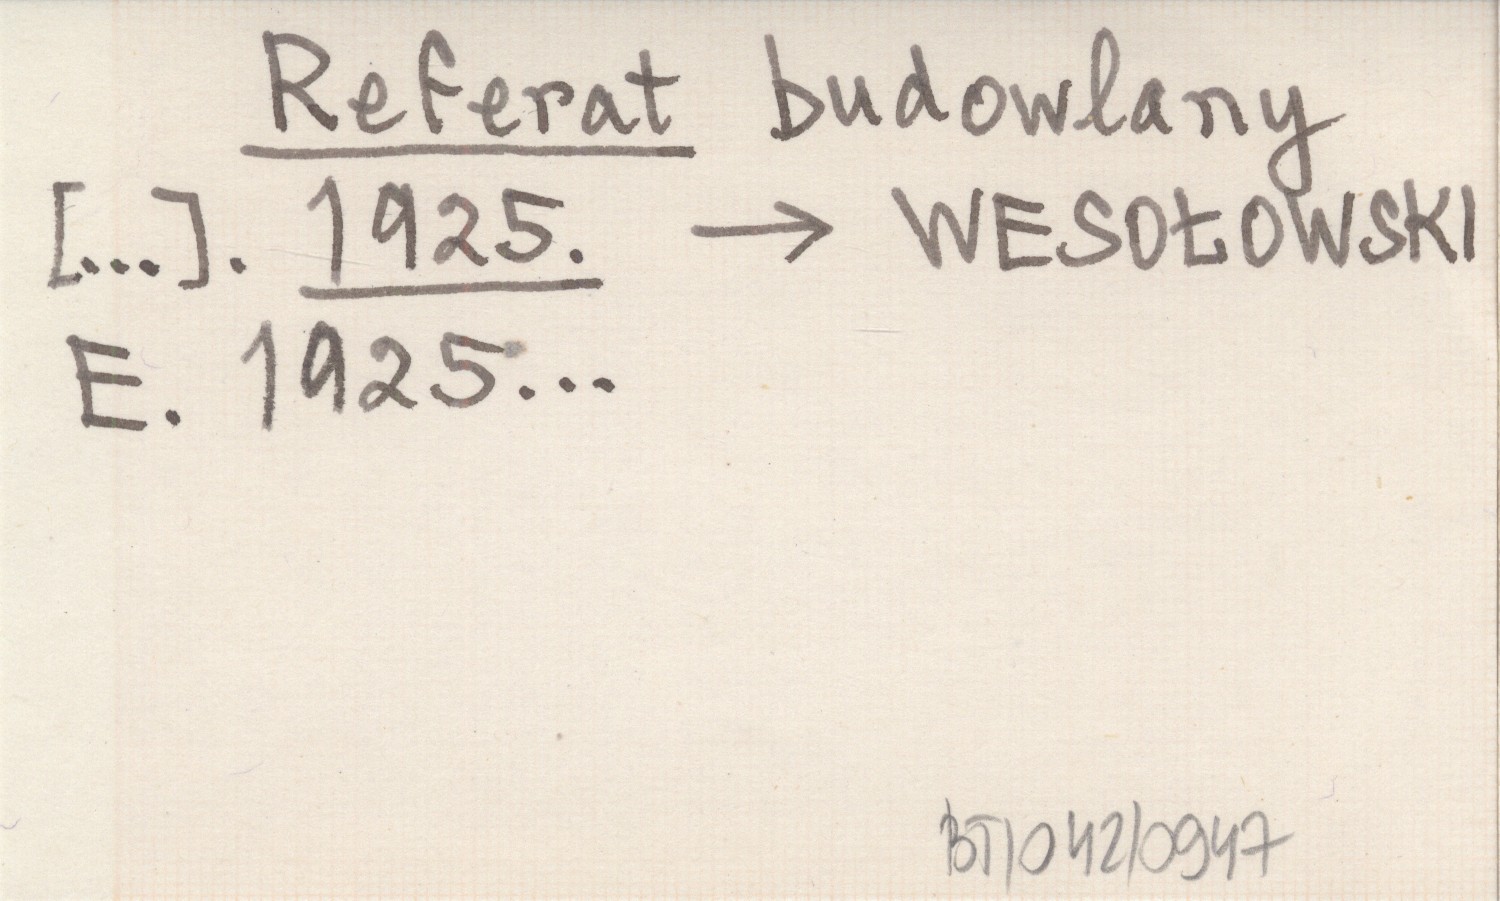 Referat budowlany
[...]. 1925. → WESOŁOWSKI
E. 1925...
BT/042/0947